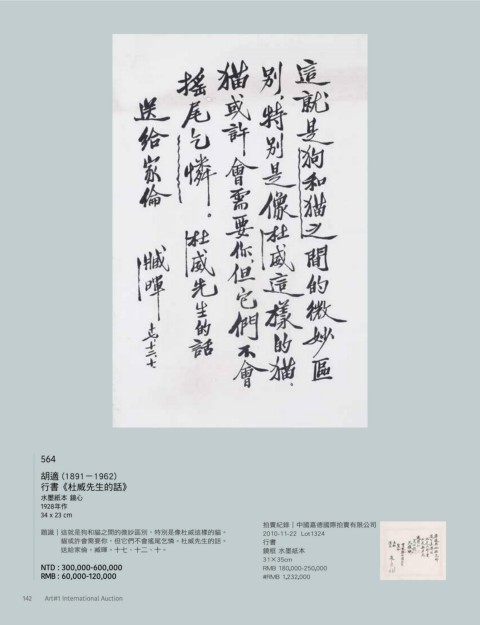 這就是狗和猫之間的微妙區
別,特別是像杜威這樣的猫.
猫或許會需要你,但它們不會
搖尾乞憐。杜威先生的話
送給家倫
臧暉
564
胡適 (1891－1962)
行書《杜威先生的話》
水墨紙本 鏡心
1928年作
34 x 23 cm
題識｜這就是狗和貓之間的微妙區別，特別是像杜威這樣的貓。
貓或許會需要你，但它們不會搖尾乞憐。杜威先生的話。
送給家倫。臧暉。十七．十二．十。
NTD : 300,000-600,000
RMB : 60,000-120,000
拍賣紀錄｜中國嘉德國際拍賣有限公司
2010-11-22 Lot1324
行書
鏡框 水墨紙本
31×35cm
RMB 180,000-250,000
#RMB 1,232,000
142 Art#1 International Auction